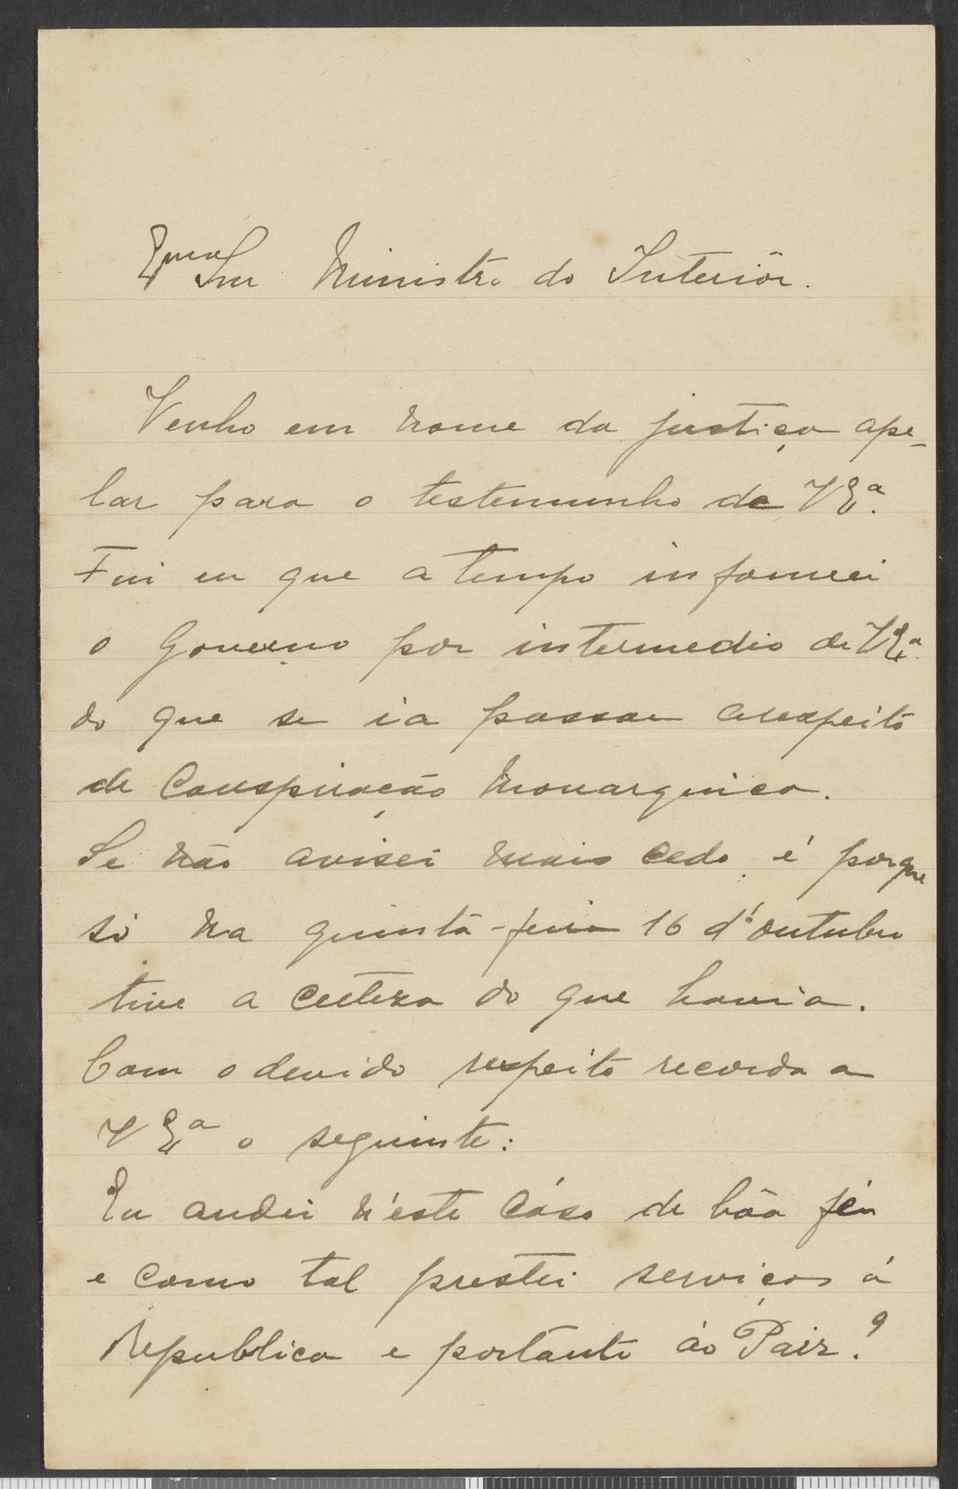 Exmo Snr Ministro do Interiôr.
Venho em nome da justiça ape-
lar para o testemunho de V Exª.
Fui eu que a tempo informei
o Governo por intermedio de V Exª.
do que se ia passar arespeito
de Conspiração Monarquica.
Se não avisei mais cedo é porque
só na quinta-feira 16 d'outubro
tive a certeza do que havia.
Com o devido respeito recordo a
V Exª o seguinte:
Eu andei n'este cáso de bôa fé
e como tal prestei serviços á
Republica e portanto áo Paiz?